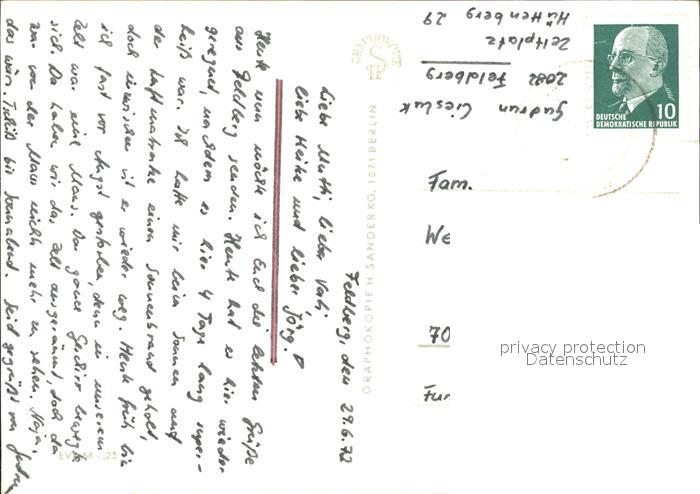 Feldberg, den 29.6.72
Liebe Mutti, lieber Vati,
liebe Heike und lieber Jörg.
Heute nun möchte ich Euch die letzten Grüße
aus Feldberg senden. Heute hat es hier wieder
geregnet, nachdem es hier 4 Tage lang super-
heiß war. Ich hatte mir beim Sonnen auf
der Luftmatratze einen Sonnenbrand geholt,
doch inzwischen ist er wieder weg. Heute früh bin
ich fast vor Angst gestorben, denn in unserem
Zelt war eine Maus. Das ganze Geschirr bewegte
sich. Da haben wir das Zelt ausgeräumt, doch da
war von der Maus nichts mehr zu sehen. Naja,
das wärs. Tschüß bis Sonnabend. Seid gegrüßt von Gudrun
GRAPHOKOPIE
GRAPHOKOPIE H. SANDER KG. 1071 BERLIN
Gudrun
2082 Feldberg
Zeltplatz
Hüttenberg
29
DEUTSCHE
DEMOKRATISCHE REPUBLIK
10
Fam.
We
70
privacy protection
Datenschutz